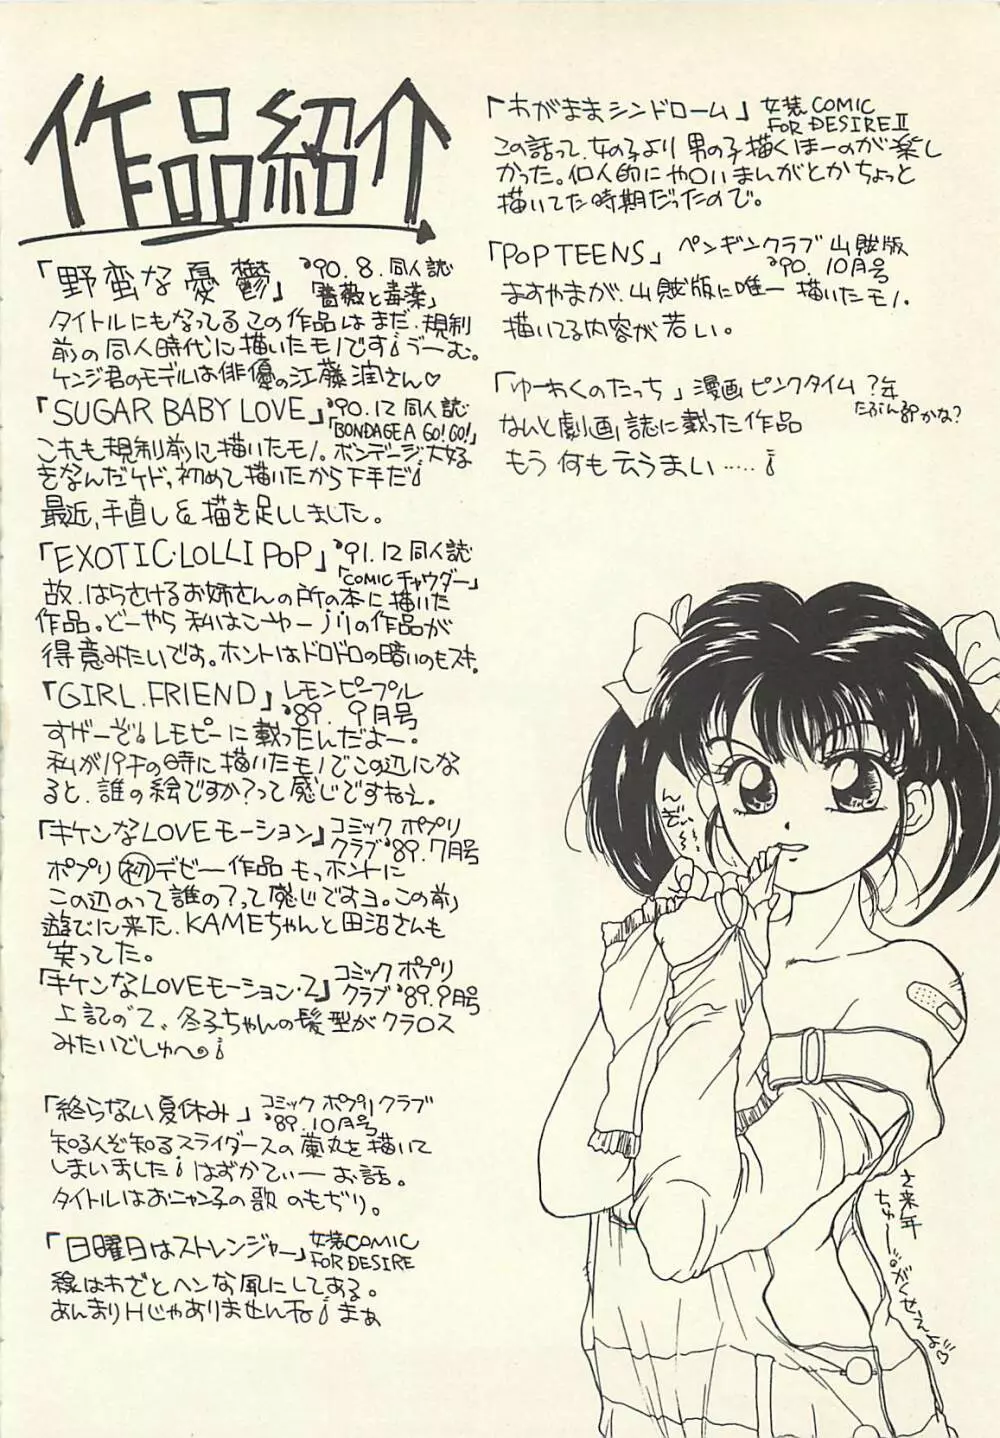 作品紹介
「野蛮な憂鬱」'90.8.同人誌
「薔薇と毒薬」
タイトルにもなってるこの作品はまだ、規制
前の同人時代に描いたモノです!うーむ。
ケンジ君のモデルは俳優の江藤潤さん♡
「SUGAR BABY LOVE」'90.12 同人誌
「BONDAGE A GO!GO!」
これも規制前に描いたモノ。ボンデージ大好
きなんだケド、初めて描いたから下手だ!
最近、手直し&描き足ししました。
「EXOTIC・LOLLI POP」'91.12 同人誌
「COMIC チャウダー」
故.はらさけるお姉さんの所の本に描いた
作品。どーやら私はこーゆーノリの作品が
得意みたいです。ホントはドロドロの暗いのもスキ。
「GIRL.FRIEND」レモンピープル
'89.9月号
すげーぞ。レモピーに載ったんだよー。
私がパチの時に描いたモノでこの辺にな
ると、誰の絵ですか?って感じですねえ。
「キケンなLOVEモーション」コミック ポプリ
クラブ'89.7月号
ポプリ初デビュー作品 もっホントに
この辺のって誰の?って感じですヨ。この前
遊びに来た、KAMEちゃんと田沼さんも
笑ってた。
「キケンなLOVEモーション・2」コミック ポプリ
クラブ'89.9月号
上記の2、冬子ちゃんの髪型がクラロス
みたいでしゅへの!
「終らない夏休み」コミック ポプリクラブ
'89.10月号
知る人ぞ知るスライダースの蘭丸を描いて
しまいました!はずかてぃーお話。
タイトルはおニャン子の歌のもぢり。
「日曜日はストレンジャー」女装COMIC
FOR DESIRE
線はわざとヘンな風にしてある。
あんまりHじゃありませんね!まぁ
「わがままシンドローム」女装COMIC
FOR DESIRE II
この話って、女の子より男の子描くほーのが楽し
かった。個人的にや○いまんがとかちょっと
描いてた時期だったので。
「POP TEENS」ペンギンクラブ山賊版
'90.10月号
ますやまが、山賊版に唯一描いたモノ。
描いてる内容が若い。
「ゆーわくのたっち」漫画ピンクタイム ?年
たぶん89かな?
なんと劇画誌に載った作品
もう何も云うまい……!
んぞぃ〜〜
さ来年
ちゅー。がくせえよ♡